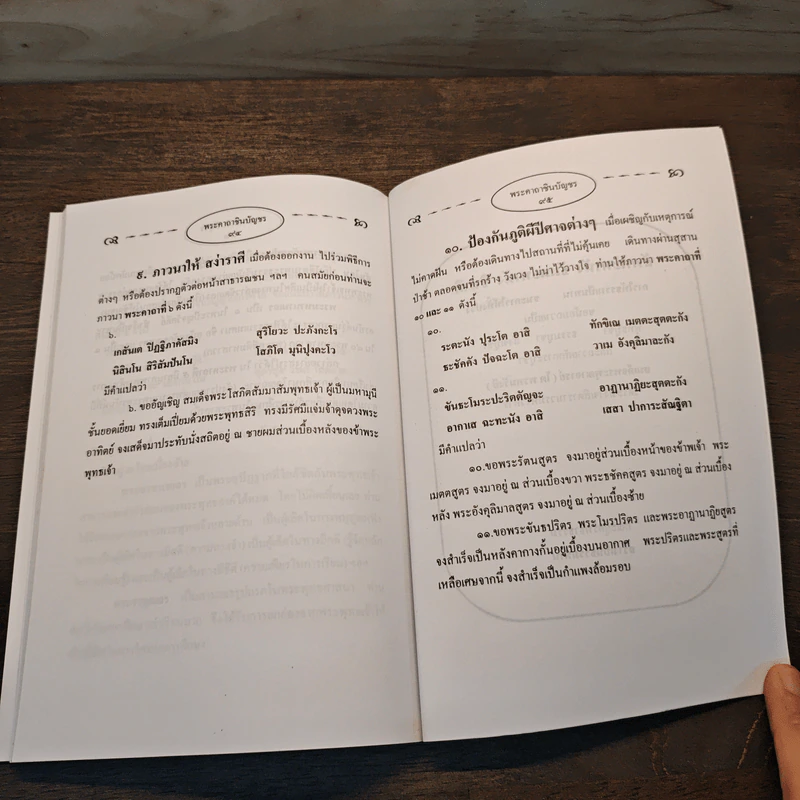 พระคาถาชินบัญชร
๙๔
๙. ภาวนาให้ สง่าราศี เมื่อต้องออกงาน ไปร่วมพิธีการ
ต่างๆ หรือต้องปรากฏตัวต่อหน้าสาธารณชน ฯลฯ คนสมัยก่อนท่านจะ
ภาวนา พระคาถาที่ ๖ ดังนี้
๖.
เกสันเต ปิฏฐิภาคัสมิง สุริโยวะ ปะภังกะโร
นิสินโน สิริสัมปันโน โสภิโต มุนิปุงคะโว
มีคำแปลว่า
๖. ขออัญเชิญ สมเด็จพระโสภิตสัมมาสัมพุทธเจ้า ผู้เป็นมหามุนี
ชั้นยอดเยี่ยม ทรงเต็มเปี่ยมด้วยพระพุทธสิริ ทรงมีรัศมีแจ่มจ้าดุจดวงพระ
อาทิตย์ จงเสด็จมาประทับนั่งสถิตอยู่ ณ ชายผมส่วนเบื้องหลังของข้าพระ
พุทธเจ้า
พระคาถาชินบัญชร
๙๕
๑๐. ป้องกันภูติผีปีศาจต่างๆ เมื่อเผชิญกับเหตุการณ์
ไม่คาดฝัน หรือต้องเดินทางไปสถานที่ที่ไม่คุ้นเคย เดินทางผ่านสุสาน
ป่าช้า ตลอดจนที่รกร้าง วังเวง ไม่น่าไว้วางใจ ท่านให้ภาวนา พระคาถาที่
๑๐ และ ๑๑ ดังนี้
๑๐.
ระตะนัง ปุระโต อาสิ ทักขิเณ เมตตะสุตตะกัง
ธะชัคคัง ปัจฉะโต อาสิ วาเม อังคุลิมาละกัง
๑๑.
ขันธะโมระปะริตตัญจะ อาฏานาฏิยะสุตตะกัง
อากาเส ฉะทะนัง อาสิ เสสา ปาการะสัณฐิตา
มีคำแปลว่า
๑๐.ขอพระรัตนสูตร จงมาอยู่ส่วนเบื้องหน้าของข้าพเจ้า พระ
เมตตสูตร จงมาอยู่ ณ ส่วนเบื้องขวา พระธชัคคสูตร จงมาอยู่ ณ ส่วนเบื้อง
หลัง พระอังคุลิมาลสูตร จงมาอยู่ ณ ส่วนเบื้องซ้าย
๑๑.ขอพระขันธปริตร พระโมรปริตร และพระอาฏานาฏิยสูตร
จงสำเร็จเป็นหลังคากางกั้นอยู่เบื้องบนอากาศ พระปริตรและพระสูตรที่
เหลือเศษจากนี้ จงสำเร็จเป็นกำแพงล้อมรอบ